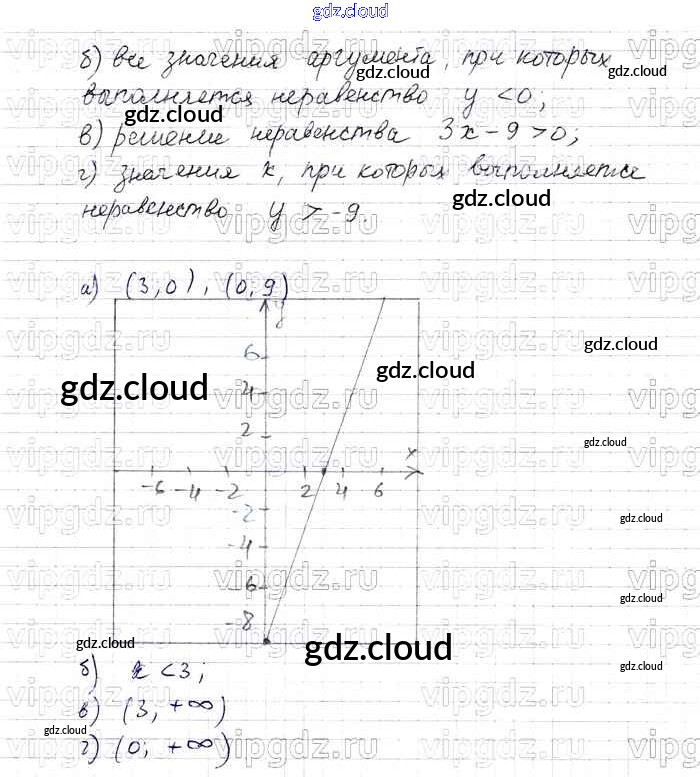 gdz.cloud
б) все значения аргумента, при которых
gdz.cloud gdz.cloud
выполняется неравенство y < 0;
gdz.cloud
в) решение неравенства 3x - 9 > 0;
г) значения x, при которых выполняется
gdz.cloud
неравенство y > -9.
а) (3,0), (0; 9)
y
6
gdz.cloud
gdz.cloud
gdz.cloud
4
2
gdz.cloud
x
-6 -4 -2 2 4 6
-2
gdz.cloud
-4
-6
gdz.cloud
-8
gdz.cloud
gdz.cloud
б) x < 3;
gdz.cloud
в) (3, +∞)
gdz.cloud
г) (0; +∞)
vipgdz.ru